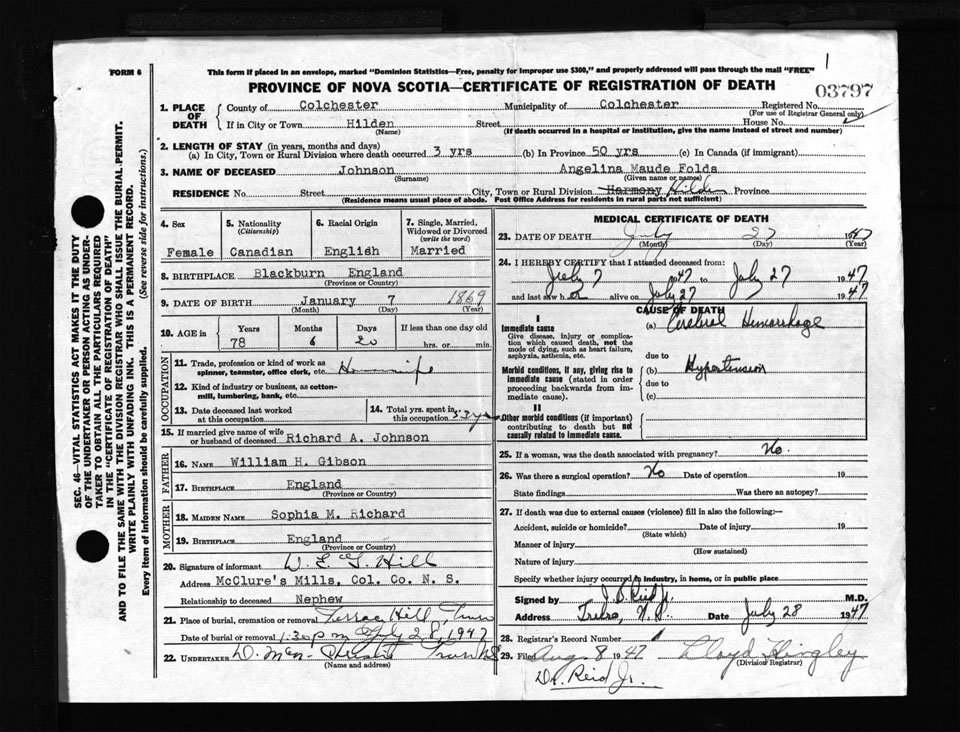 1
FORM 6
This form if placed in an envelope, marked "Dominion Statistics—Free, penalty for improper use $300," and properly addressed will pass through the mail "FREE"
PROVINCE OF NOVA SCOTIA—CERTIFICATE OF REGISTRATION OF DEATH
03797
1. PLACE OF DEATH
County of Colchester Municipality of Colchester Registered No.
(For use of Registrar General only)
If in City or Town Hilden Street House No.
(Name) (If death occurred in a hospital or institution, give the name instead of street and number)
2. LENGTH OF STAY (in years, months and days)
(a) In City, Town or Rural Division where death occurred 3 yrs (b) In Province 50 yrs (c) In Canada (if immigrant)
3. NAME OF DECEASED Johnson Angelina Maude Folds
(Surname) (Given name or names)
RESIDENCE No. Street City, Town or Rural Division Harmony Hilden Province
(Residence means usual place of abode. Post Office Address for residents in rural parts not sufficient)
4. Sex
Female
5. Nationality
(Citizenship)
Canadian
6. Racial Origin
English
7. Single, Married, Widowed or Divorced
(write the word)
Married
8. BIRTHPLACE Blackburn England
(Province or Country)
9. DATE OF BIRTH January 7 1869
(Month) (Day) (Year)
10. AGE in Years Months Days If less than one day old
78 6 20 hrs. or min.
OCCUPATION
11. Trade, profession or kind of work as
spinner, teamster, office clerk, etc. Housewife
12. Kind of industry or business, as cotton-
mill, lumbering, bank, etc.
13. Date deceased last worked
at this occupation
14. Total yrs. spent in
this occupation 53 yrs
15. If married give name of wife
or husband of deceased Richard A. Johnson
FATHER
16. NAME William H. Gibson
17. BIRTHPLACE England
(Province or Country)
MOTHER
18. MAIDEN NAME Sophia M. Richard
19. BIRTHPLACE England
(Province or Country)
20. Signature of informant Hill
Address McClure's Mills, Col. Co. N. S.
Relationship to deceased Nephew
21. Place of burial, cremation or removal Terrace Hill, Truro
Date of burial or removal 1:30 pm July 28, 1947
22. UNDERTAKER Truro NS
(Name and address)
MEDICAL CERTIFICATE OF DEATH
23. DATE OF DEATH July 27 1947
(Month) (Day) (Year)
24. I HEREBY CERTIFY that I attended deceased from:
July 7 1947 to July 27 1947
and last saw her alive on July 27 1947
CAUSE OF DEATH
I
Immediate cause
Give disease, injury or complica-
tion which caused death, not the
mode of dying, such as heart failure,
asphyxia, asthenia, etc.
(a) Cerebral Hemorrhage
due to
Morbid conditions, if any, giving rise to
immediate cause (stated in order
proceeding backwards from im-
mediate cause).
(b) Hypertension
due to
(c)
II
Other morbid conditions (if important)
contributing to death but not
causally related to immediate cause.
25. If a woman, was the death associated with pregnancy? No.
26. Was there a surgical operation? No Date of operation 19
State findings Was there an autopsy?
27. If death was due to external causes (violence) fill in also the following:—
Accident, suicide or homicide? Date of injury 19
(State which)
Manner of injury
(How sustained)
Nature of injury
Specify whether injury occurred in industry, in home, or in public place
Signed by J. B. Reid Jr. M.D.
Address Truro, N.S. Date July 28 1947
28. Registrar's Record Number
29. Filed Aug. 8 1947 Lloyd Hingley
(Division Registrar)
Dr. Reid Jr.
SEC. 46—VITAL STATISTICS ACT MAKES IT THE DUTY
OF THE UNDERTAKER OR PERSON ACTING AS UNDER-
TAKER TO OBTAIN ALL THE PARTICULARS REQUIRED
IN THE "CERTIFICATE OF REGISTRATION OF DEATH"
AND TO FILE THE SAME WITH THE DIVISION REGISTRAR WHO SHALL ISSUE THE BURIAL PERMIT.
WRITE PLAINLY WITH UNFADING INK. THIS IS A PERMANENT RECORD.
Every item of information should be carefully supplied. (See reverse side for instructions.)